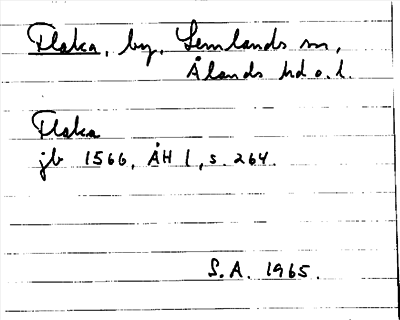 Flaka, by, Lemlands sn,
Ålands hd o. l.
Flaka
jb 1566, ÅH 1, s. 264.
S.A. 1965.